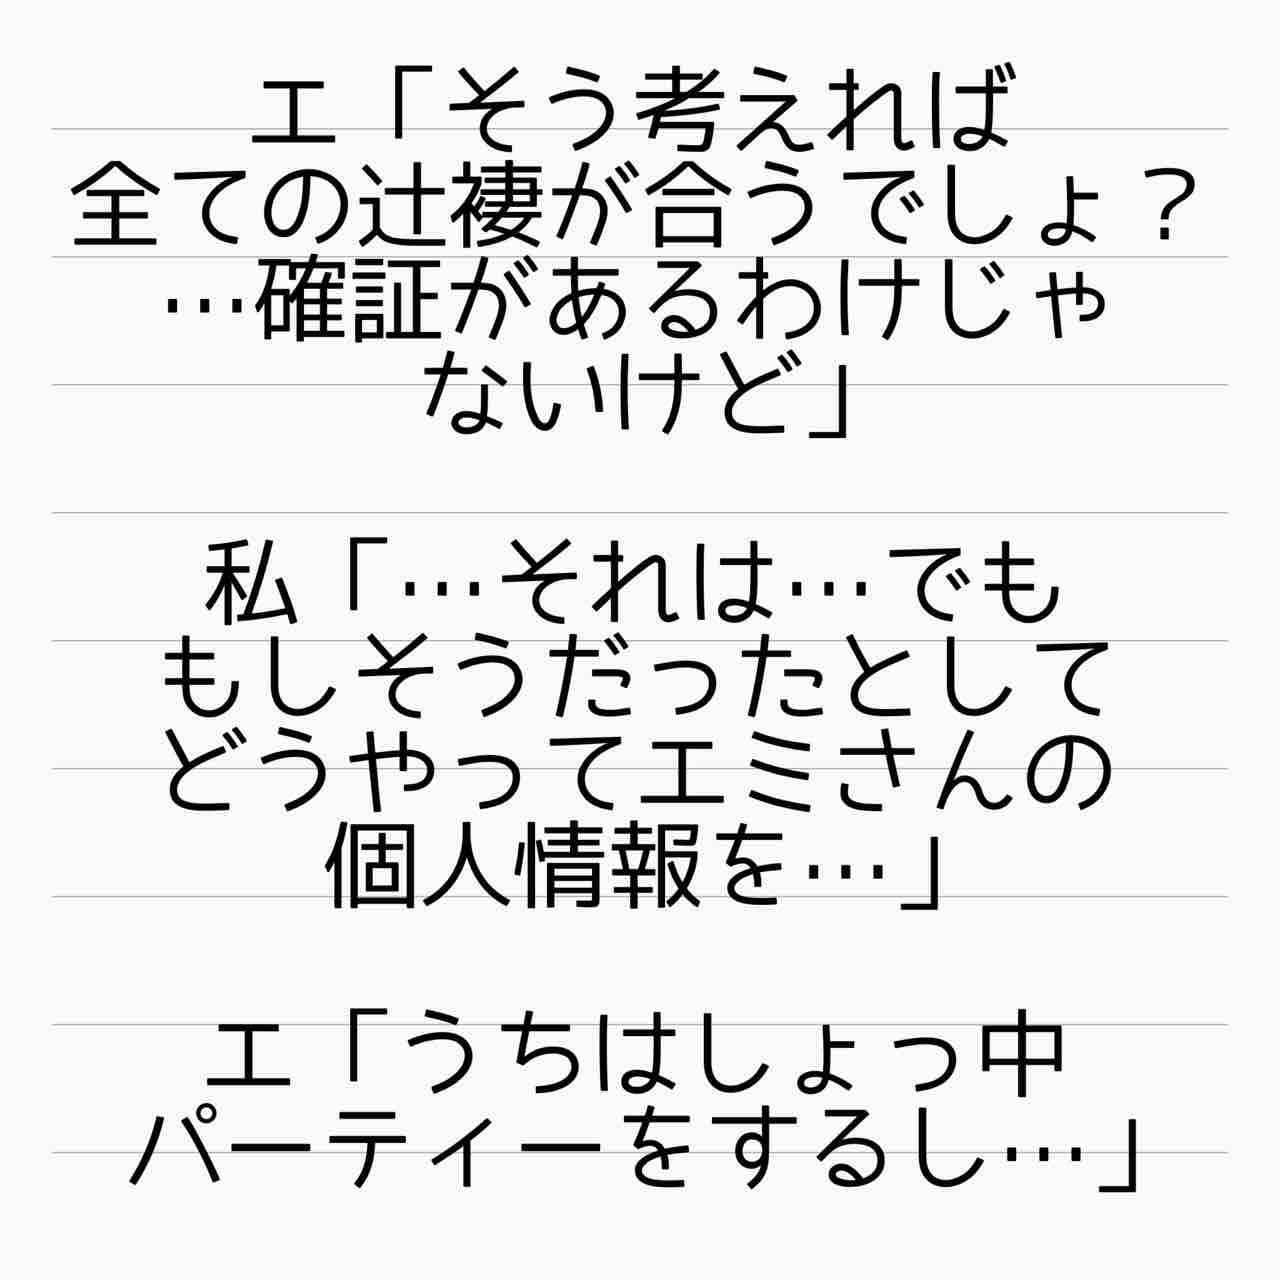 エ「そう考えれば
全ての辻褄が合うでしょ？
…確証があるわけじゃ
ないけど」
私「…それは…でも
もしそうだったとして
どうやってエミさんの
個人情報を…」
エ「うちはしょっ中
パーティーをするし…」